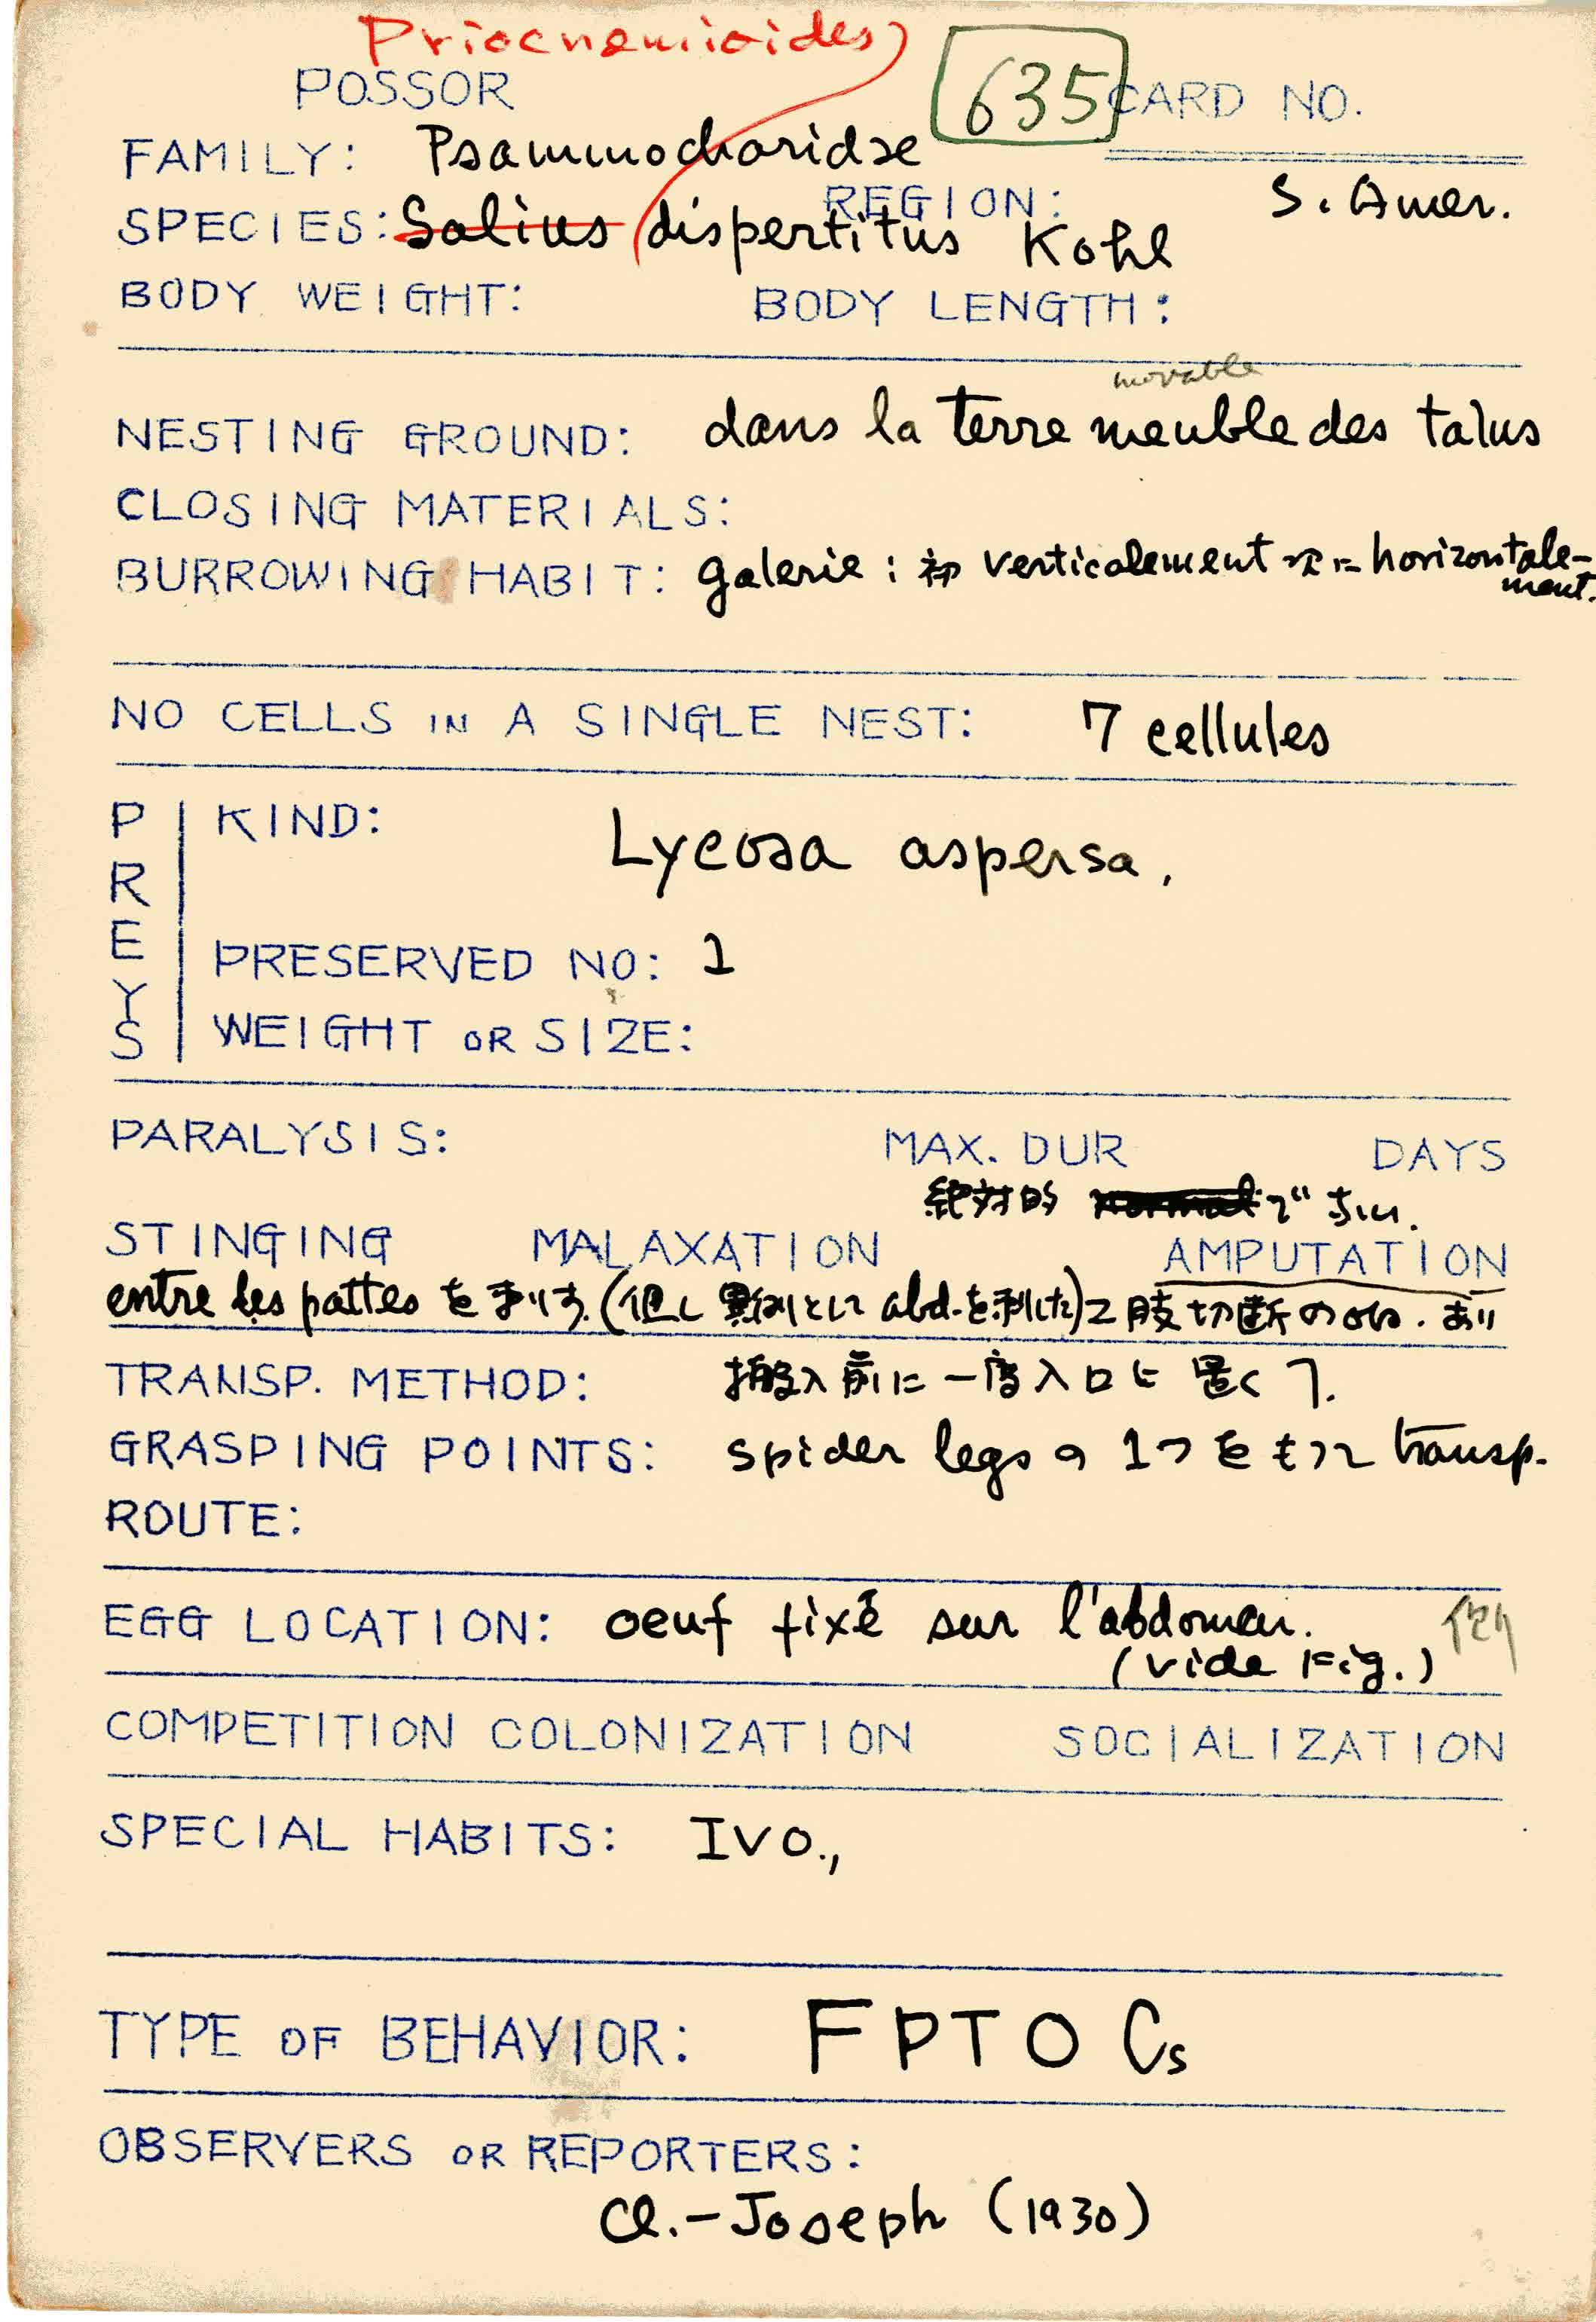 Priocnemioides
POSSOR 635 CARD NO.
FAMILY: Psammocharidae
REGION: S. Amer.
SPECIES: Salius dispertitus Kohl
BODY WEIGHT: BODY LENGTH:
movable
NESTING GROUND: dans la terre meuble des talus
CLOSING MATERIALS:
BURROWING HABIT: galerie: 初 verticalement 次に horizontale-
ment.
NO CELLS IN A SINGLE NEST: 7 cellules
PREYS
KIND: Lycosa aspersa.
PRESERVED NO: 1
WEIGHT OR SIZE:
PARALYSIS: MAX. DUR DAYS
絶対的 normal でない.
STINGING MALAXATION AMPUTATION
entre les pattes を刺す. (但し 異例として abd. を刺した) 肢切断の obs. あり
TRANSP. METHOD: 搬入前に一度入口に置く
GRASPING POINTS: spider legs の 1つをもって transp.
ROUTE:
EGG LOCATION: oeuf fixé sur l'abdomen.
(vide Fig.)
COMPETITION COLONIZATION SOCIALIZATION
SPECIAL HABITS: IVO.,
TYPE OF BEHAVIOR: FPTO Cs
OBSERVERS OR REPORTERS:
Cl.-Joseph (1930)